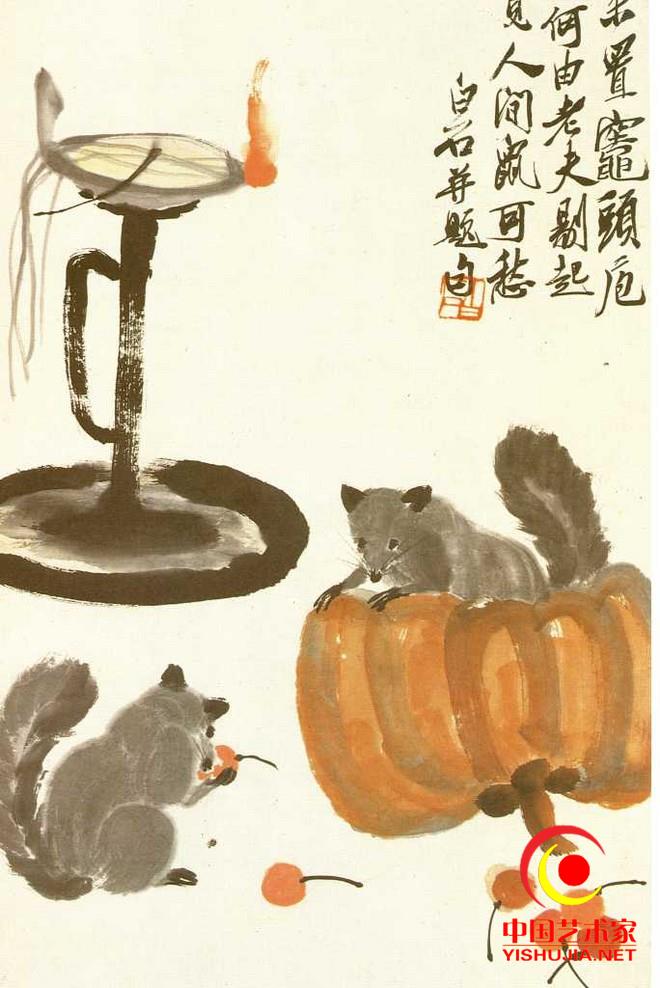 置竈頭庖
何由老夫剔起
見人间鼠可愁
白石并题句
中国艺术家
YISHUJIA.NET